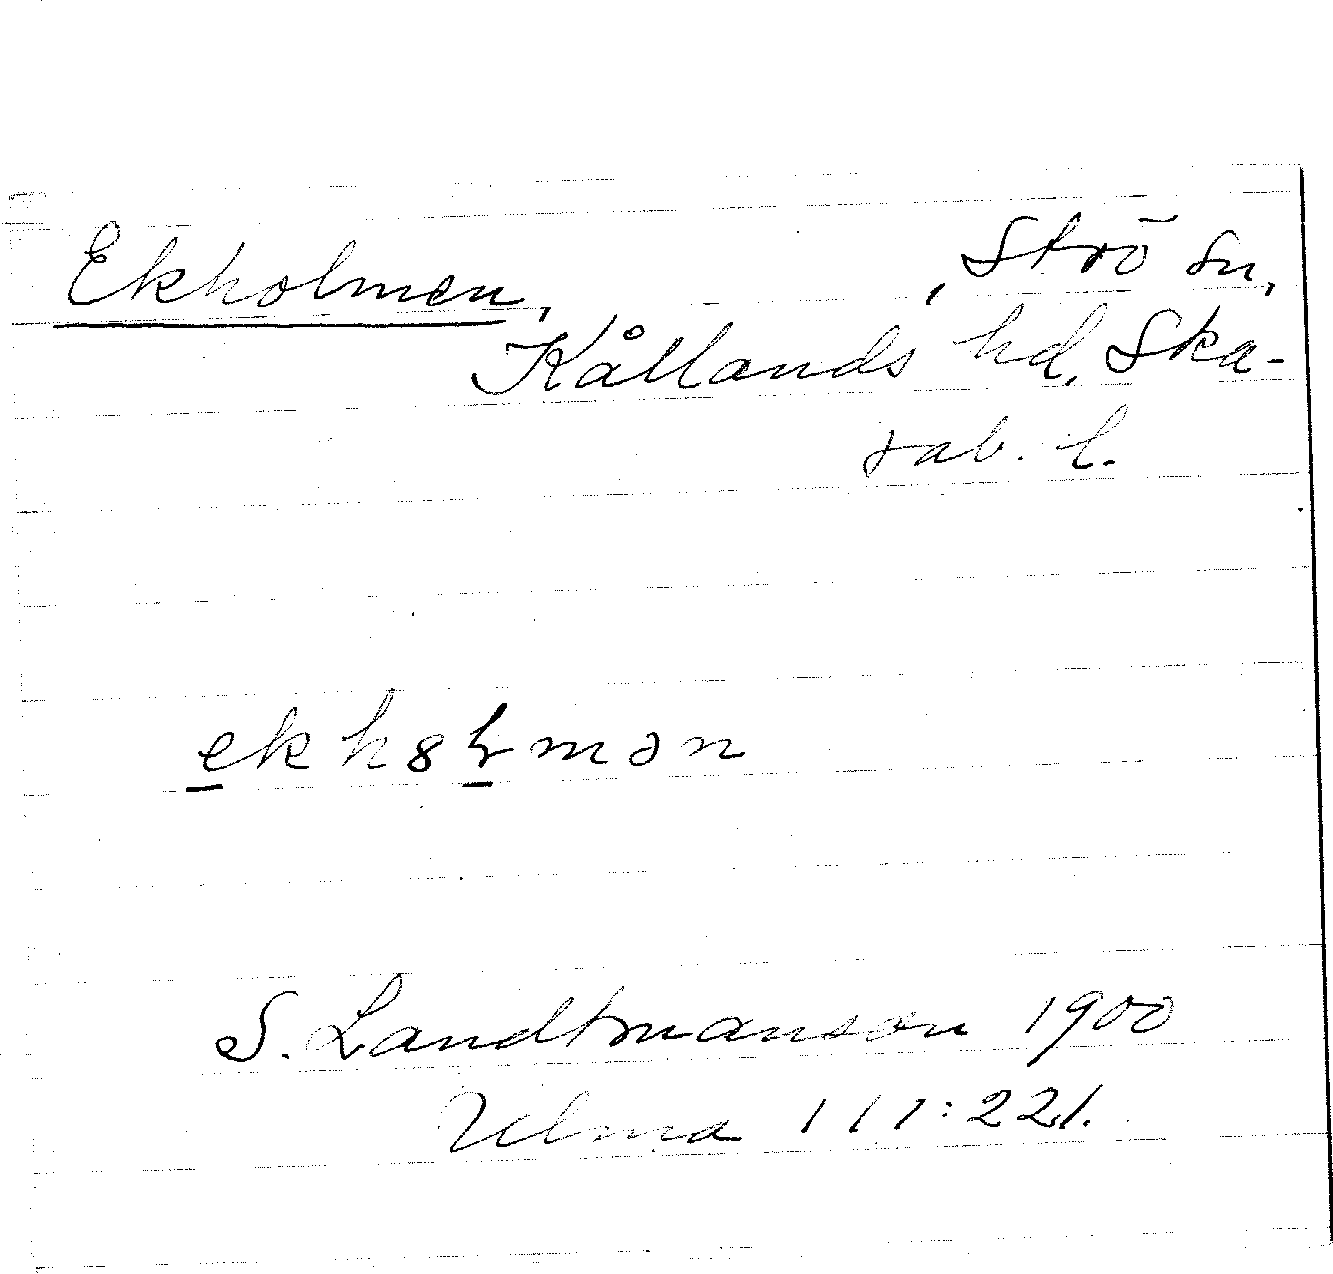 Ekholmen, , Strö sn,
Kållands hd, Ska-
rab. l.
ekh8ɫmən
S. Landtmanson 1900
Ulma 111:221.